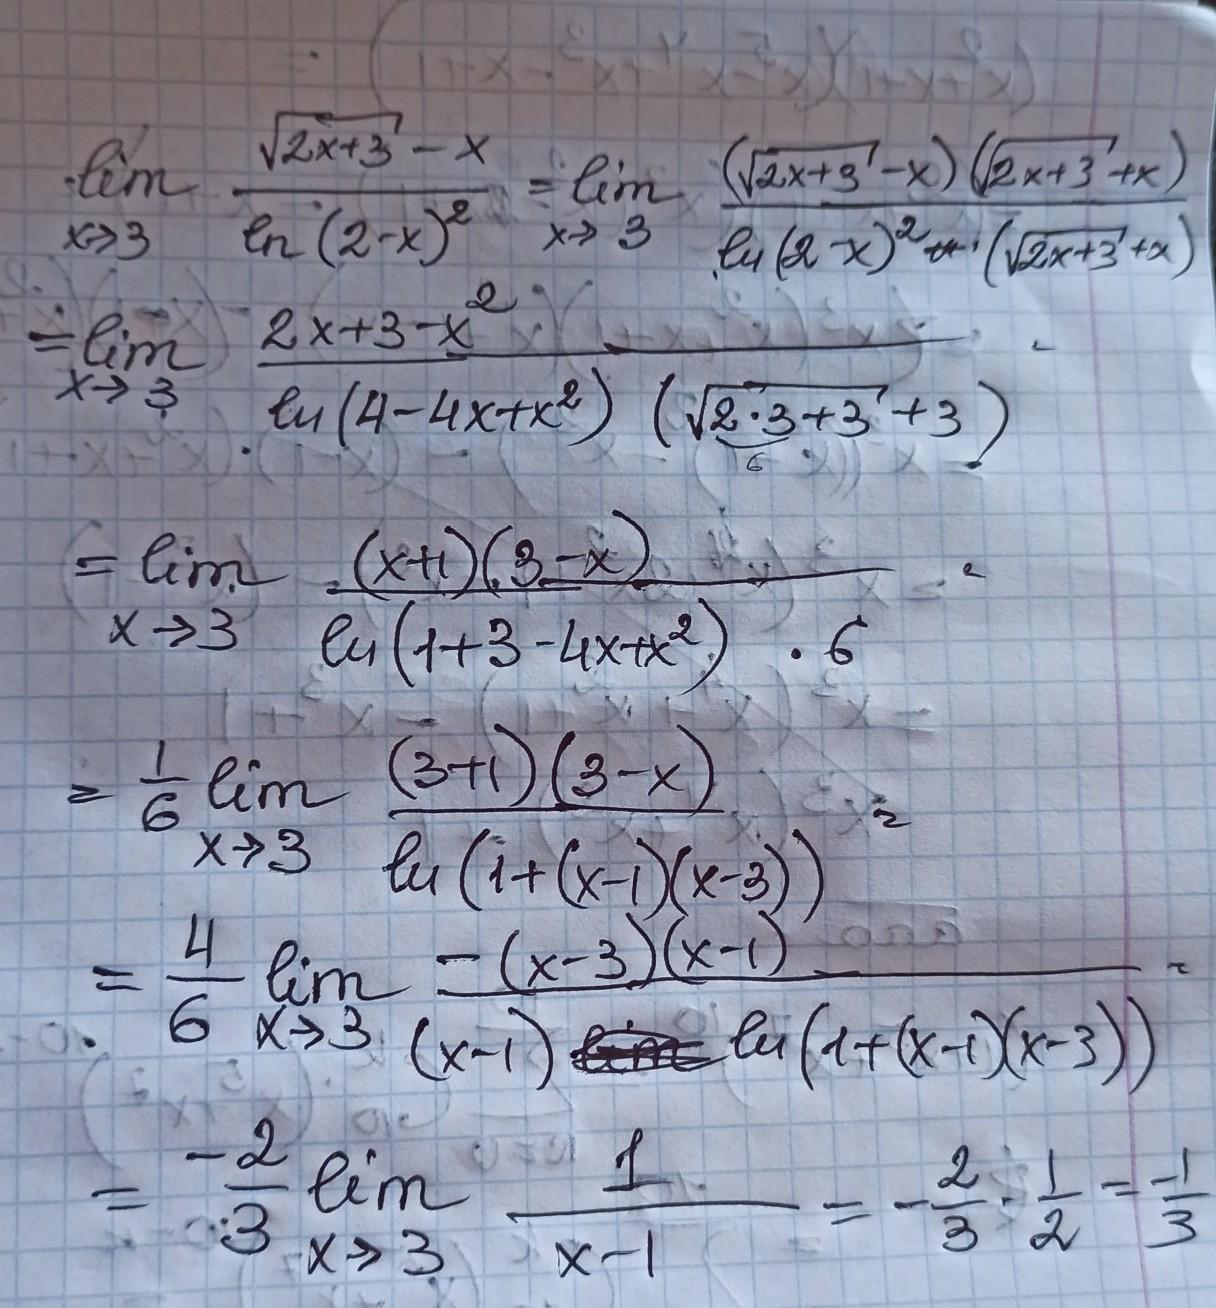 lim x→3 (√(2x+3) - x) / (ln(2-x)²) = lim x→3 ((√(2x+3) - x)(√(2x+3) + x)) / (ln(2-x)² · (√(2x+3) + x))
= lim x→3 (2x+3-x²) / (ln(4-4x+x²) (√(2·3+3) + 3)) =
6
= lim x→3 ((x+1)(3-x)) / (ln(1+3-4x+x²) · 6) =
= 1/6 lim x→3 ((3+1)(3-x)) / (ln(1+(x-1)(x-3))) =
= 4/6 lim x→3 (-(x-3)(x-1)) / ((x-1) ln(1+(x-1)(x-3))) =
= -2/3 lim x→3 1/(x-1) = -2/3 · 1/2 = -1/3